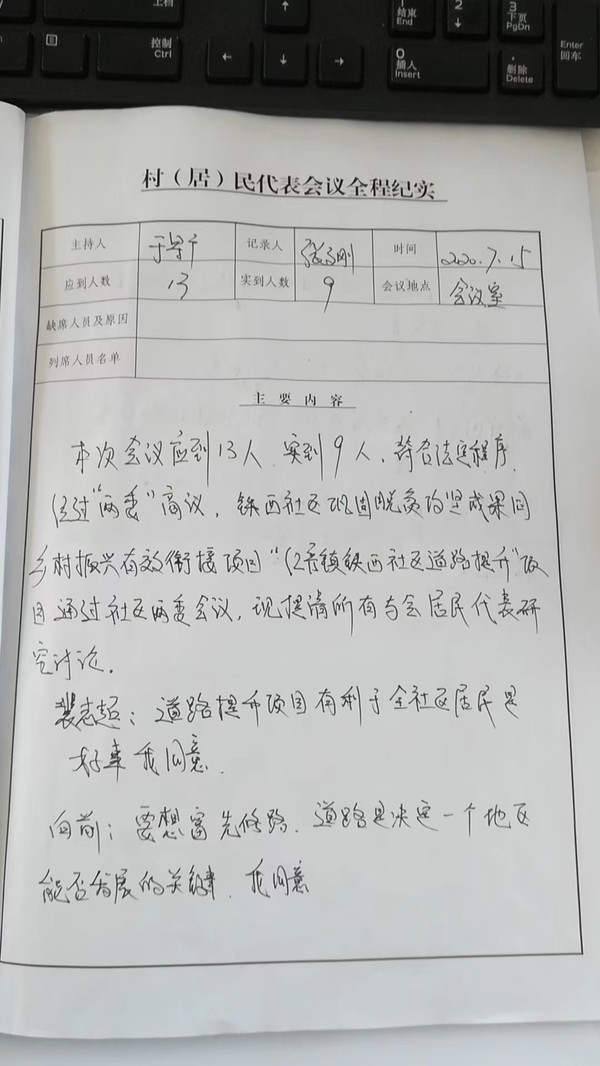 上档
↑
1
结束
End
2
↓
3
下页
PgDn
控制
Ctrl
←
↓
→
0
插入
Insert
.
删除
Delete
Enter
回车
村（居）民代表会议全程纪实
主持人 于 记录人 张 刚 时间 2020.7.15
应到人数 13 实到人数 9 会议地点 会议室
缺席人员及原因
列席人员名单
主要内容
本次会议应到13人 实到9人，符合法定程序
经过“两委”商议，铁西社区巩固脱贫攻坚成果同
乡村振兴有效衔接项目“ 镇铁西社区道路提升”项
目通过社区两委会议，现提请所有与会居民代表研
究讨论。
裴志超：道路提升项目有利于全社区居民是
好事 我同意.
向前：要想富先修路. 道路是决定一个地区
能否发展的关键. 我同意